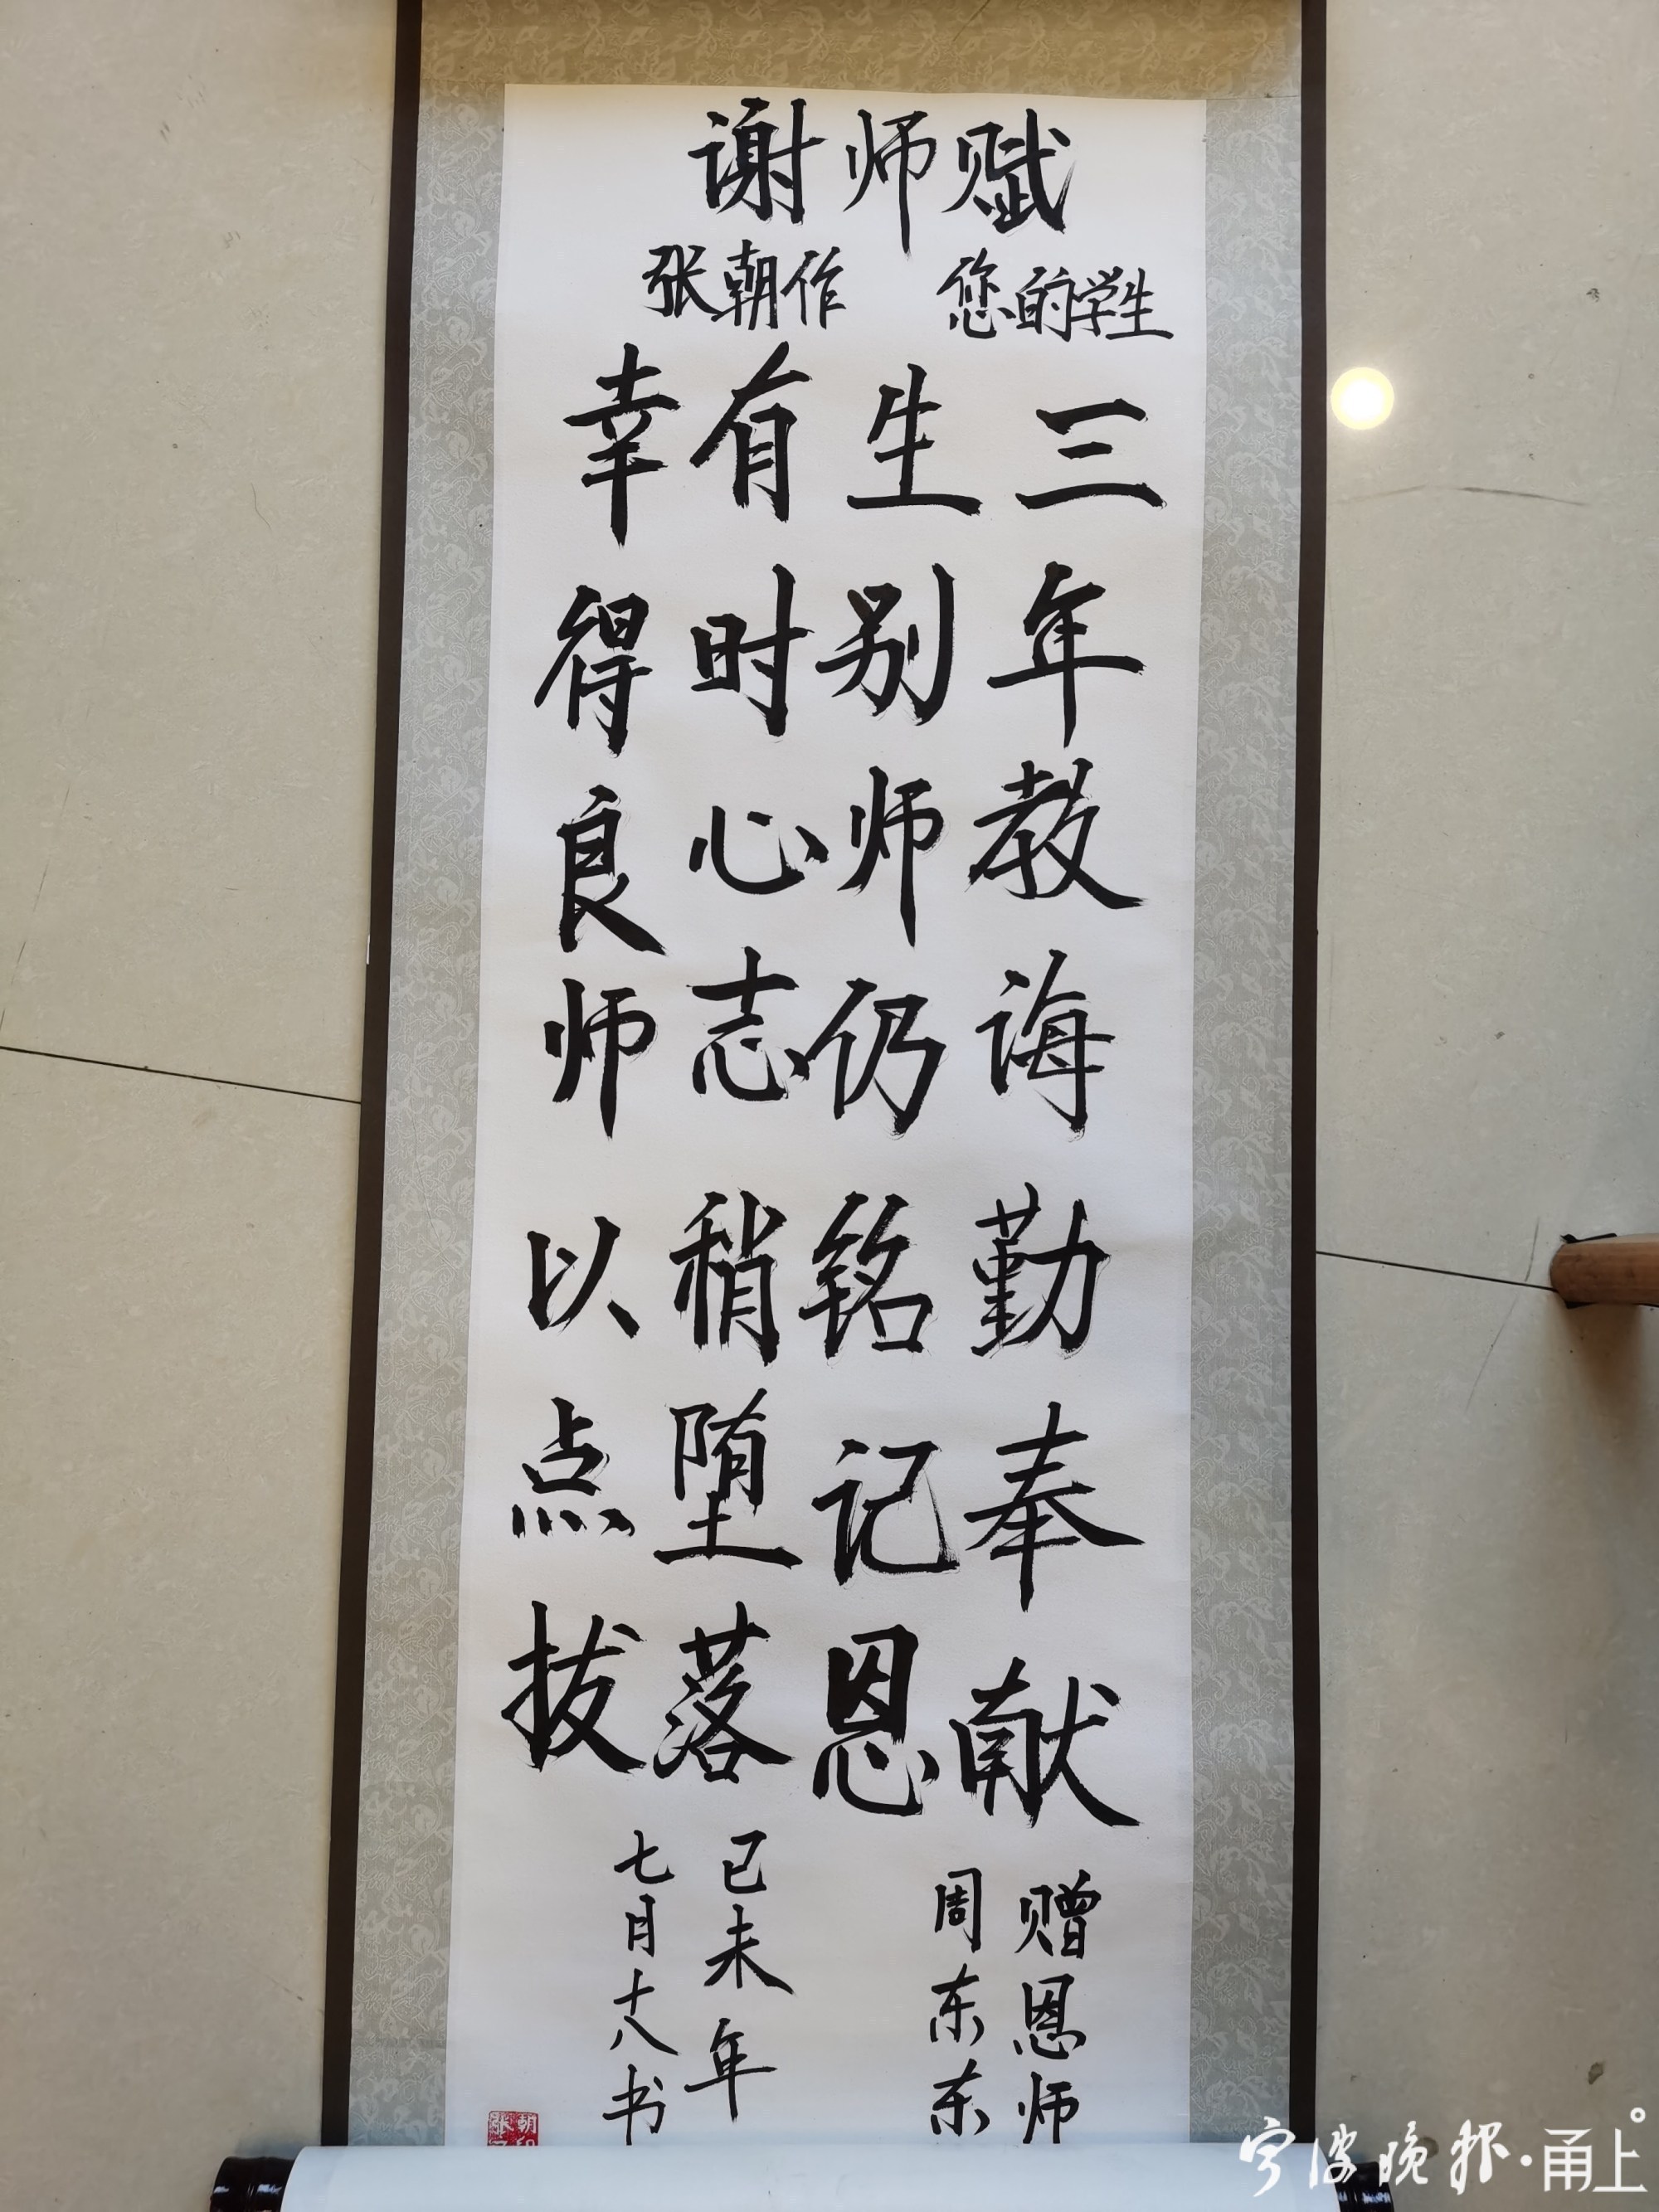 谢师赋
您的学生
张朝作
三年教诲勤奉献
生别师仍铭记恩
有时心志稍堕落
幸得良师以点拔
赠恩师
周东东
己未年
七月十八书
宁波晚报·甬上